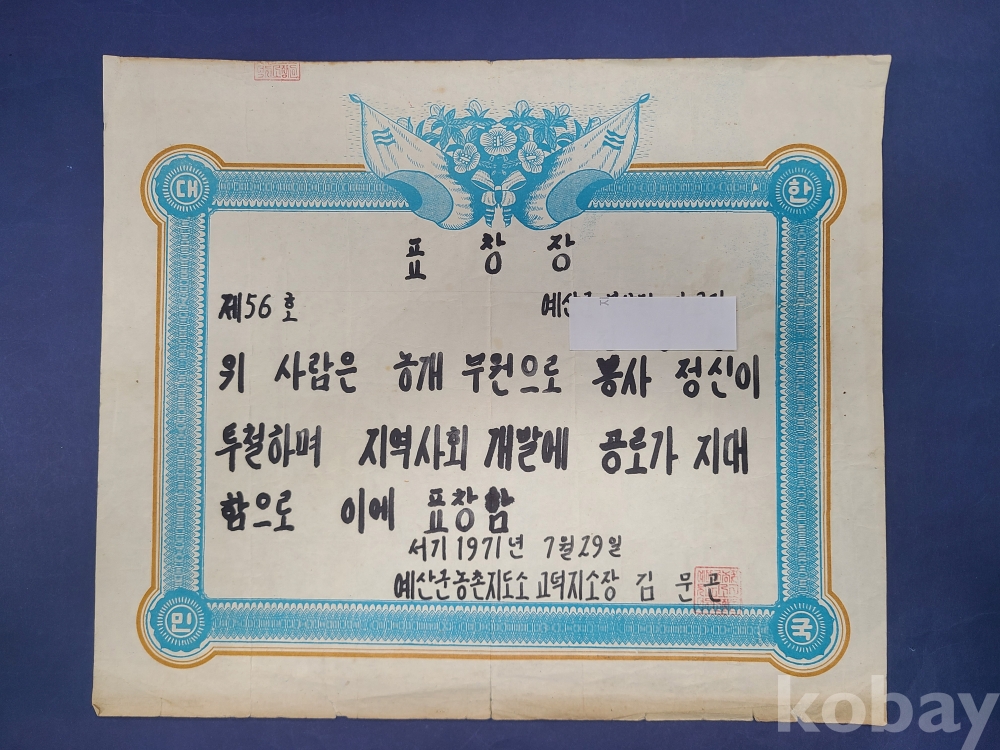 대 한
표 창 장
제56호 예산군
위 사람은 농개 부원으로 봉사 정신이
투철하며 지역사회 개발에 공로가 지대
함으로 이에 표창함
서기 1971년 7월 29일
예산군농촌지도소 고덕지소장 김 문
민 국
kobay